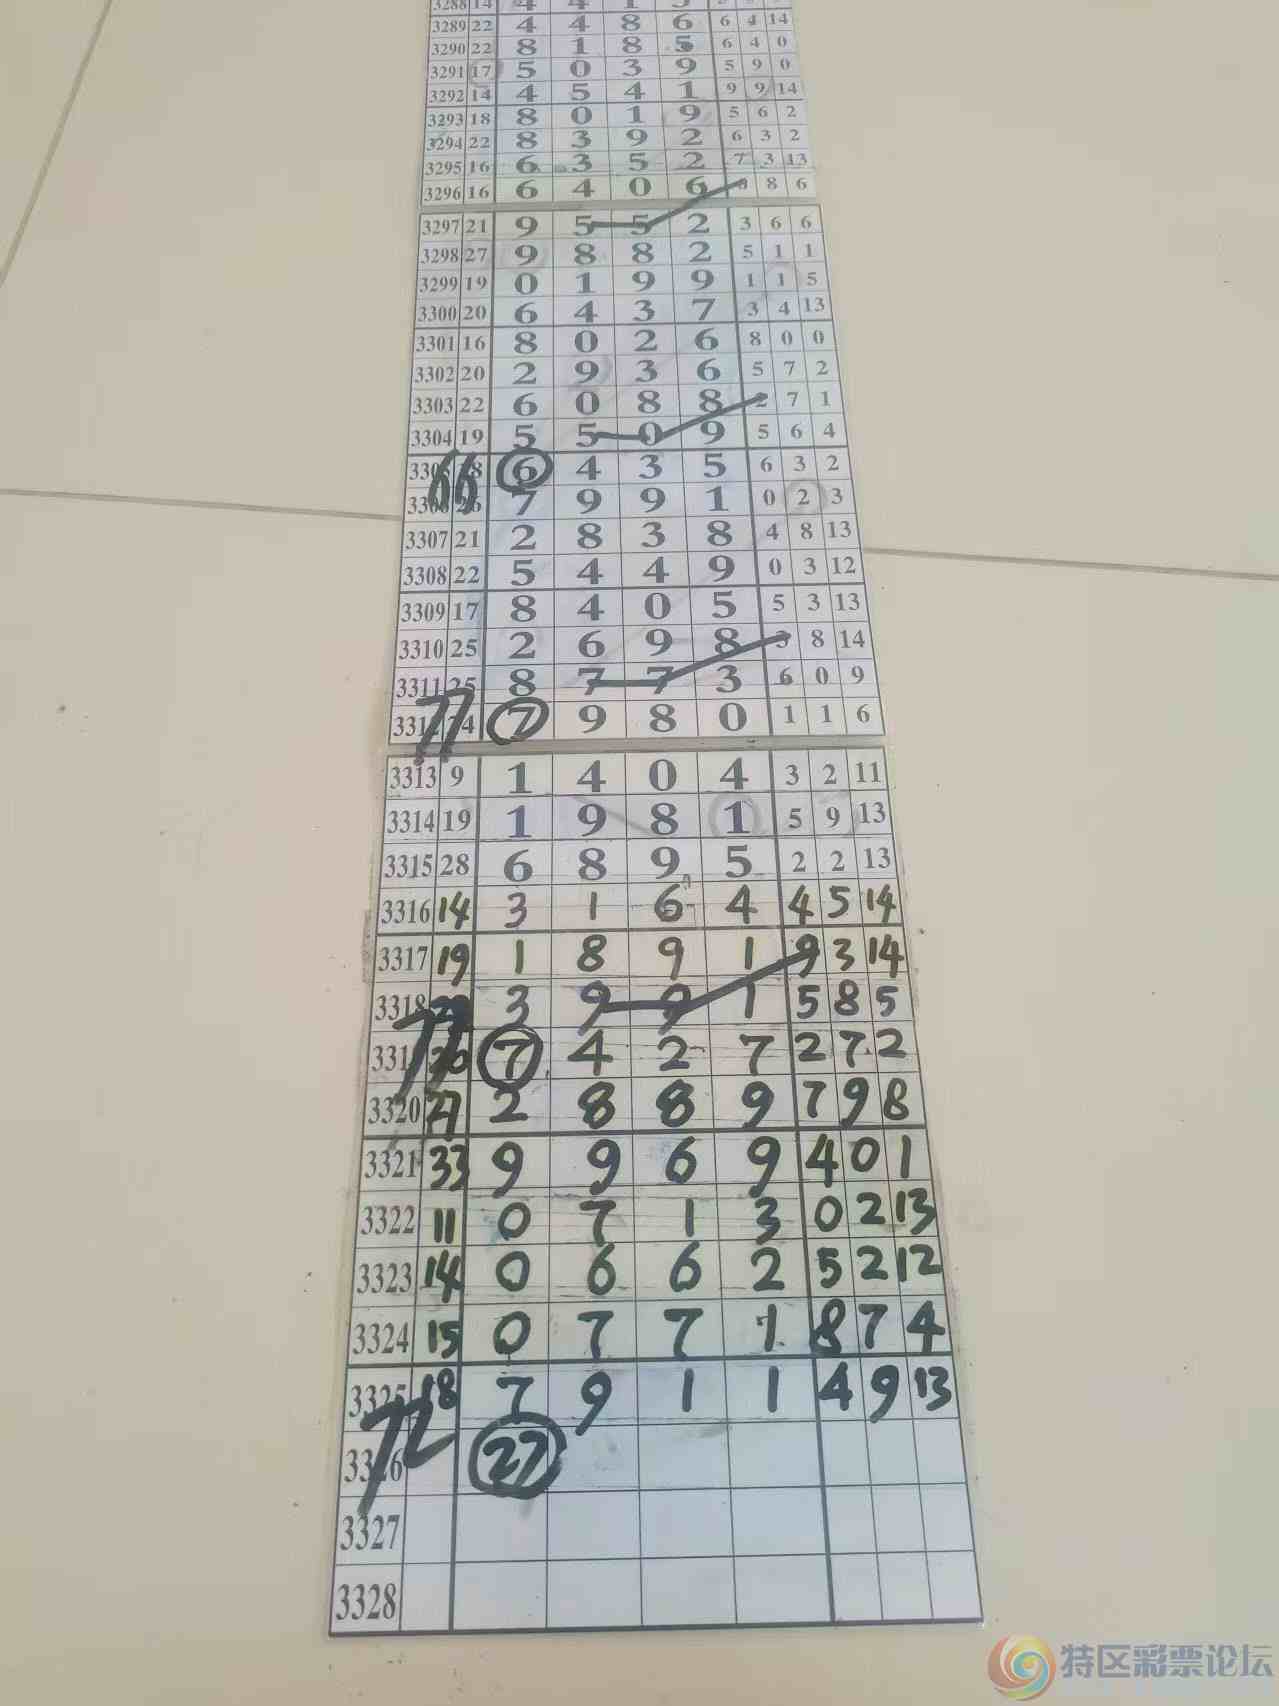 3288 14 4 4 1 5
3289 22 4 4 8 6 6 4 14
3290 22 8 1 8 5 6 4 0
3291 17 5 0 3 9 5 9 0
3292 14 4 5 4 1 9 9 14
3293 18 8 0 1 9 5 6 2
3294 22 8 3 9 2 6 3 2
3295 16 6 3 5 2 7 3 13
3296 16 6 4 0 6 8 6
3297 21 9 5 5 2 3 6 6
3298 27 9 8 8 2 5 1 1
3299 19 0 1 9 9 1 1 5
3300 20 6 4 3 7 3 4 13
3301 16 8 0 2 6 8 0 0
3302 20 2 9 3 6 5 7 2
3303 22 6 0 8 8 2 7 1
3304 19 5 5 0 9 5 6 4
3305 18 6 4 3 5 6 3 2
66
3306 26 7 9 9 1 0 2 3
3307 21 2 8 3 8 4 8 13
3308 22 5 4 4 9 0 3 12
3309 17 8 4 0 5 5 3 13
3310 25 2 6 9 8 3 8 14
3311 25 8 7 7 3 6 0 9
77
3312 24 7 9 8 0 1 1 6
3313 9 1 4 0 4 3 2 11
3314 19 1 9 8 1 5 9 13
3315 28 6 8 9 5 2 2 13
3316 14 3 1 6 4 4 5 14
3317 19 1 8 9 1 9 3 14
3318 22 3 9 9 1 5 8 5
77
3319 20 7 4 2 7 2 7 2
3320 27 2 8 8 9 7 9 8
3321 33 9 9 6 9 4 0 1
3322 11 0 7 1 3 0 2 13
3323 14 0 6 6 2 5 2 12
3324 15 0 7 7 1 8 7 4
3325 18 7 9 1 1 4 9 13
72
3326 27
3327
3328
特区彩票论坛